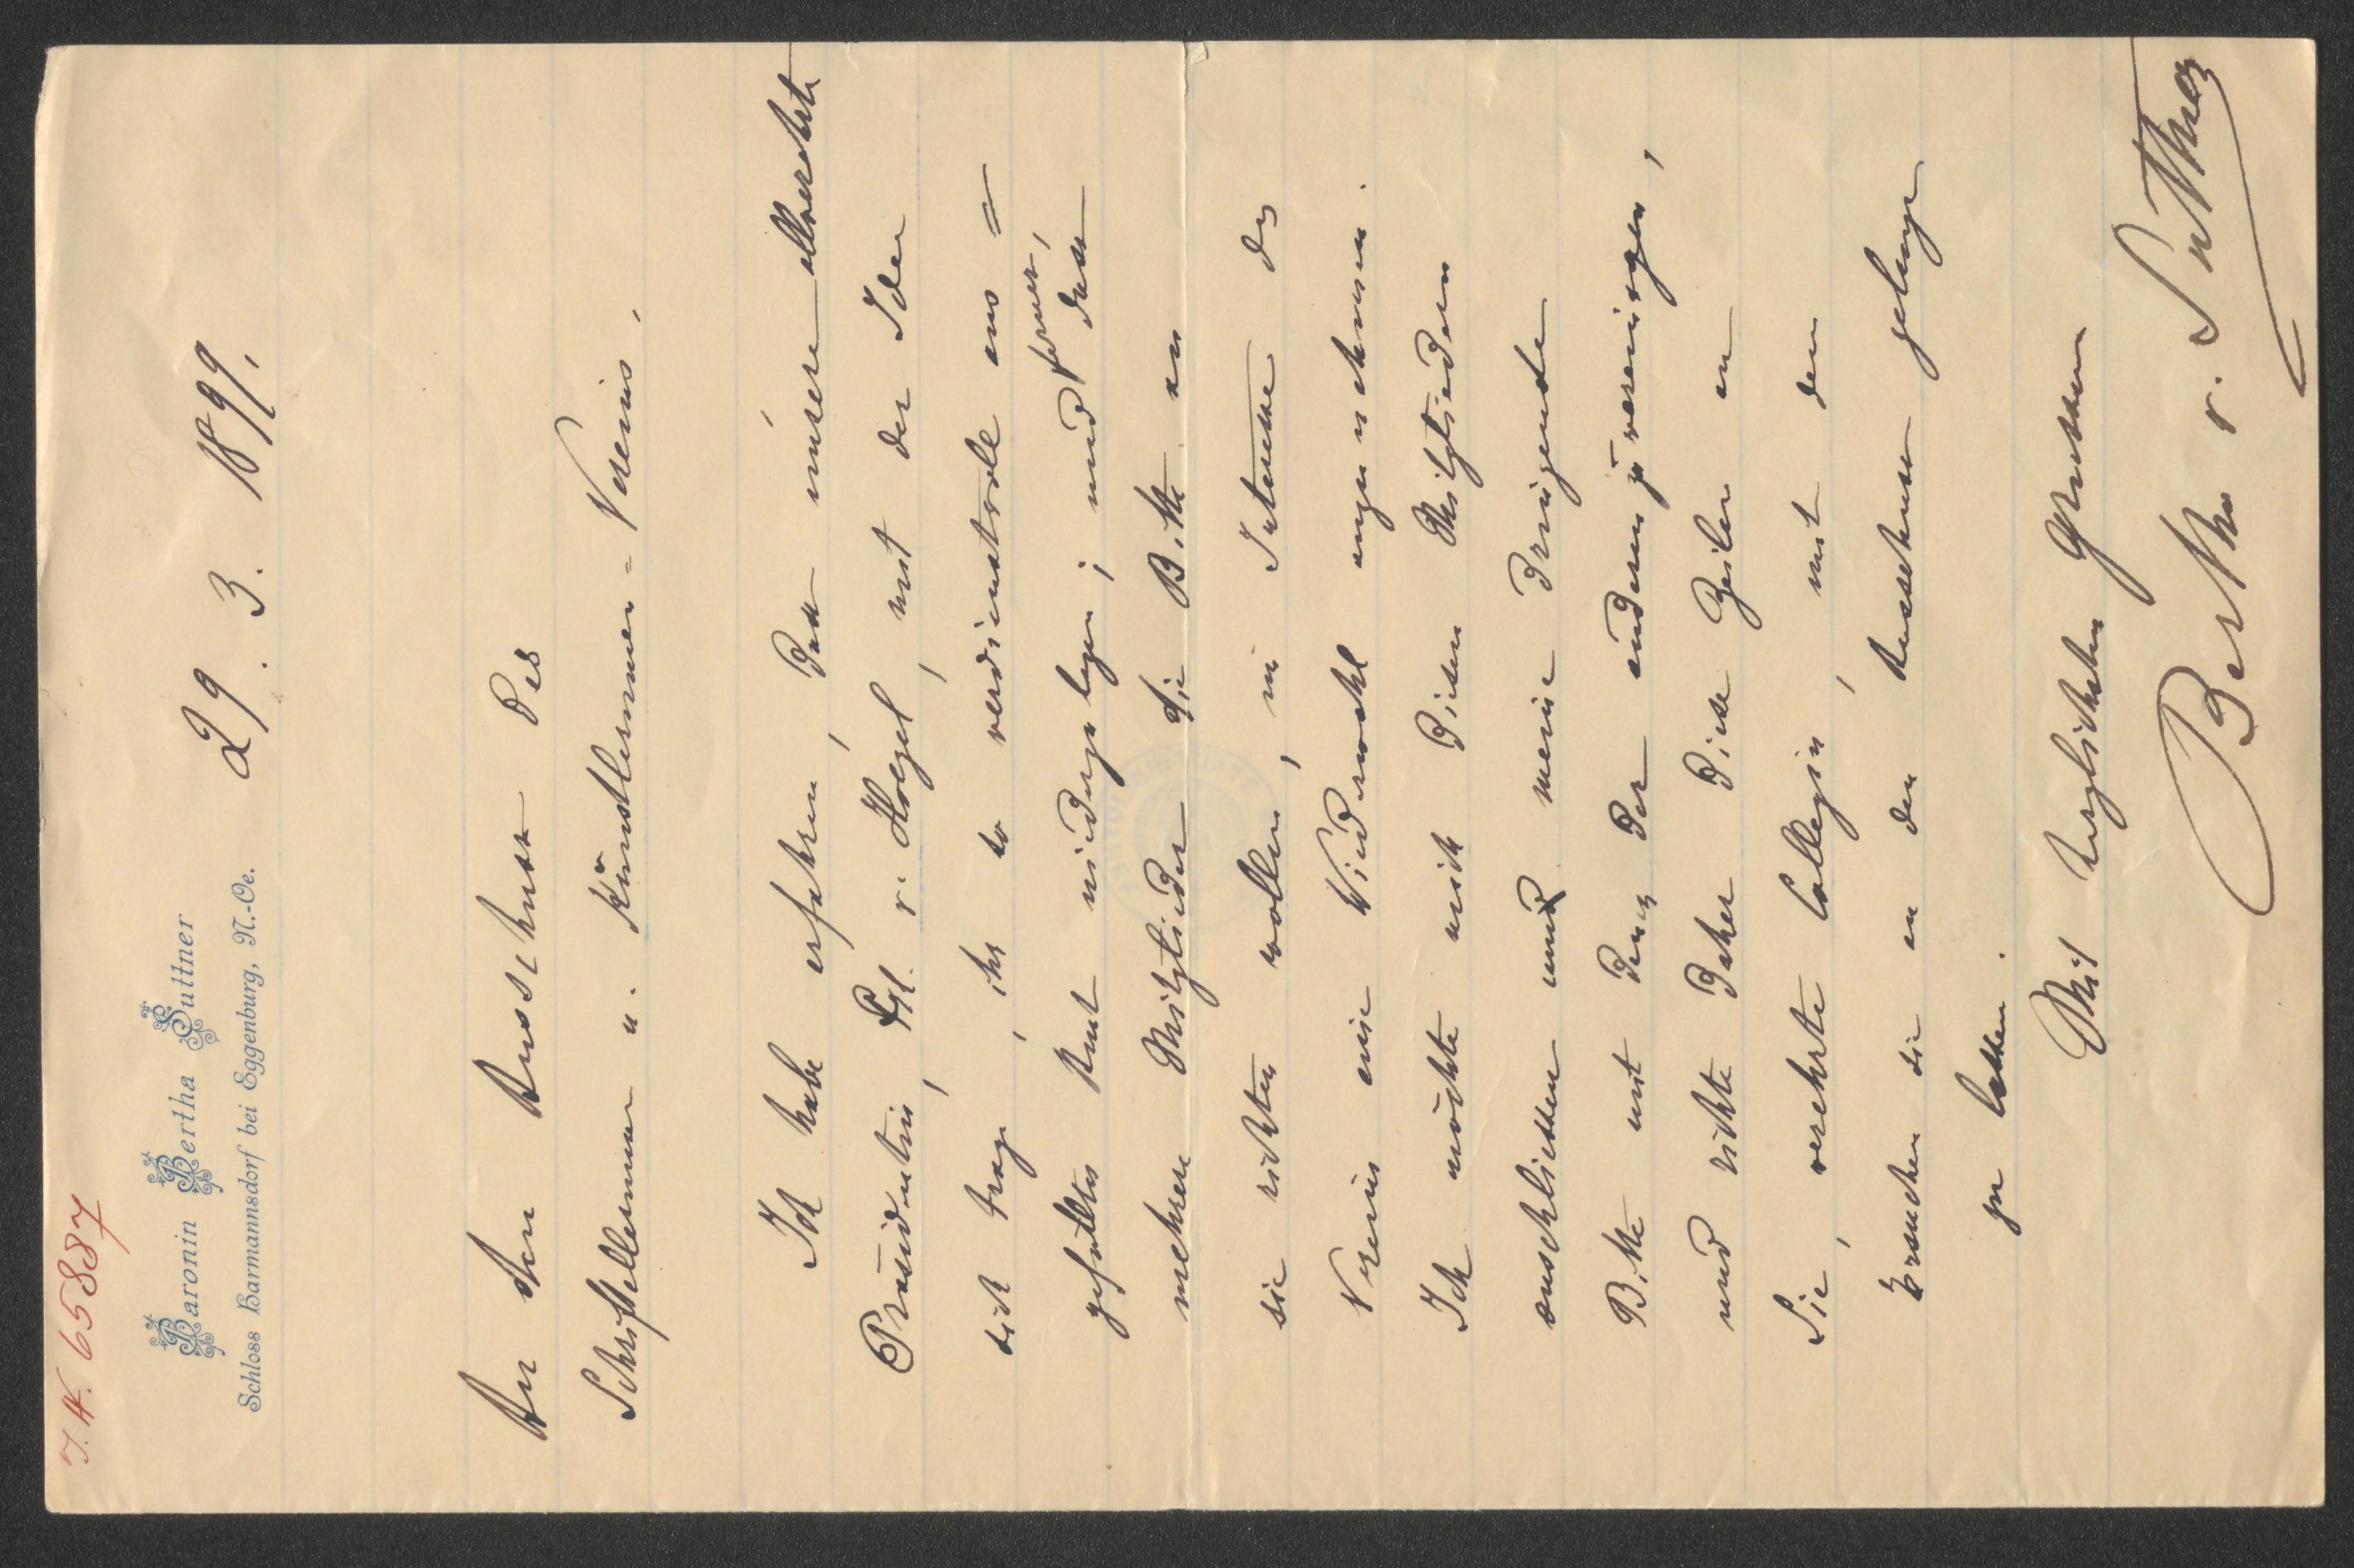 I.N. 65887
Baronin Bertha Suttner
Schloss Harmannsdorf bei Eggenburg, N.-Oe.
29. 3. 1899.
An den Ausschuss des
Schriftstellerinnen u. Künstlerinnen-Vereins.
Ich habe erfahren, dass unsere allverehrte
Präsidentin, Frl. v. Thegel, mit der Idee
sich trage, ihr so verdienstvoll aus=
gefülltes Amt niederzulegen; und ferner, dass
mehrere Mitglieder die Bitte an
sie richten wollen, im Interesse des
Vereins eine Wiederwahl anzunehmen.
Ich möchte mich diesen Mitgliedern
anschliessen und meine dringende
Bitte mit denen der anderen zu vereinigen,
und richte daher diese Zeilen an
Sie, verehrte Collegin, mit dem
Ersuchen sie an den Ausschuss gelangen
zu lassen.
Mit herzlichsten Grüssen
Bertha v. Suttner